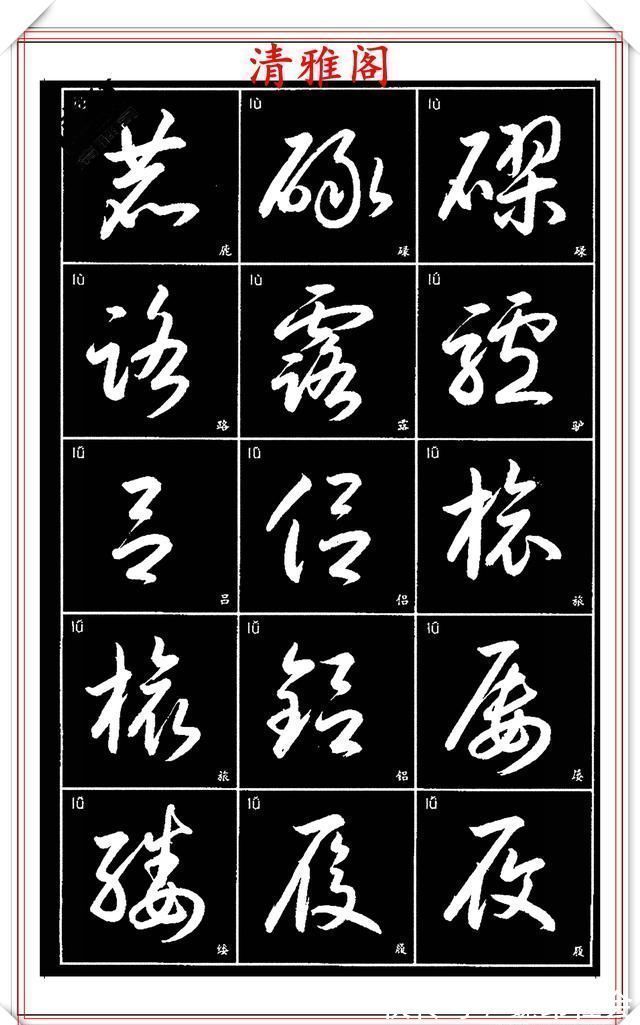 清雅阁
lù lù
碌 碌
lù lù lǘ
路 露 驴
lǚ lǚ lǚ
吕 侣 旅
lǚ lǚ lǚ
旅 铝 屡
lǚ lǚ lǚ
缕 履 履